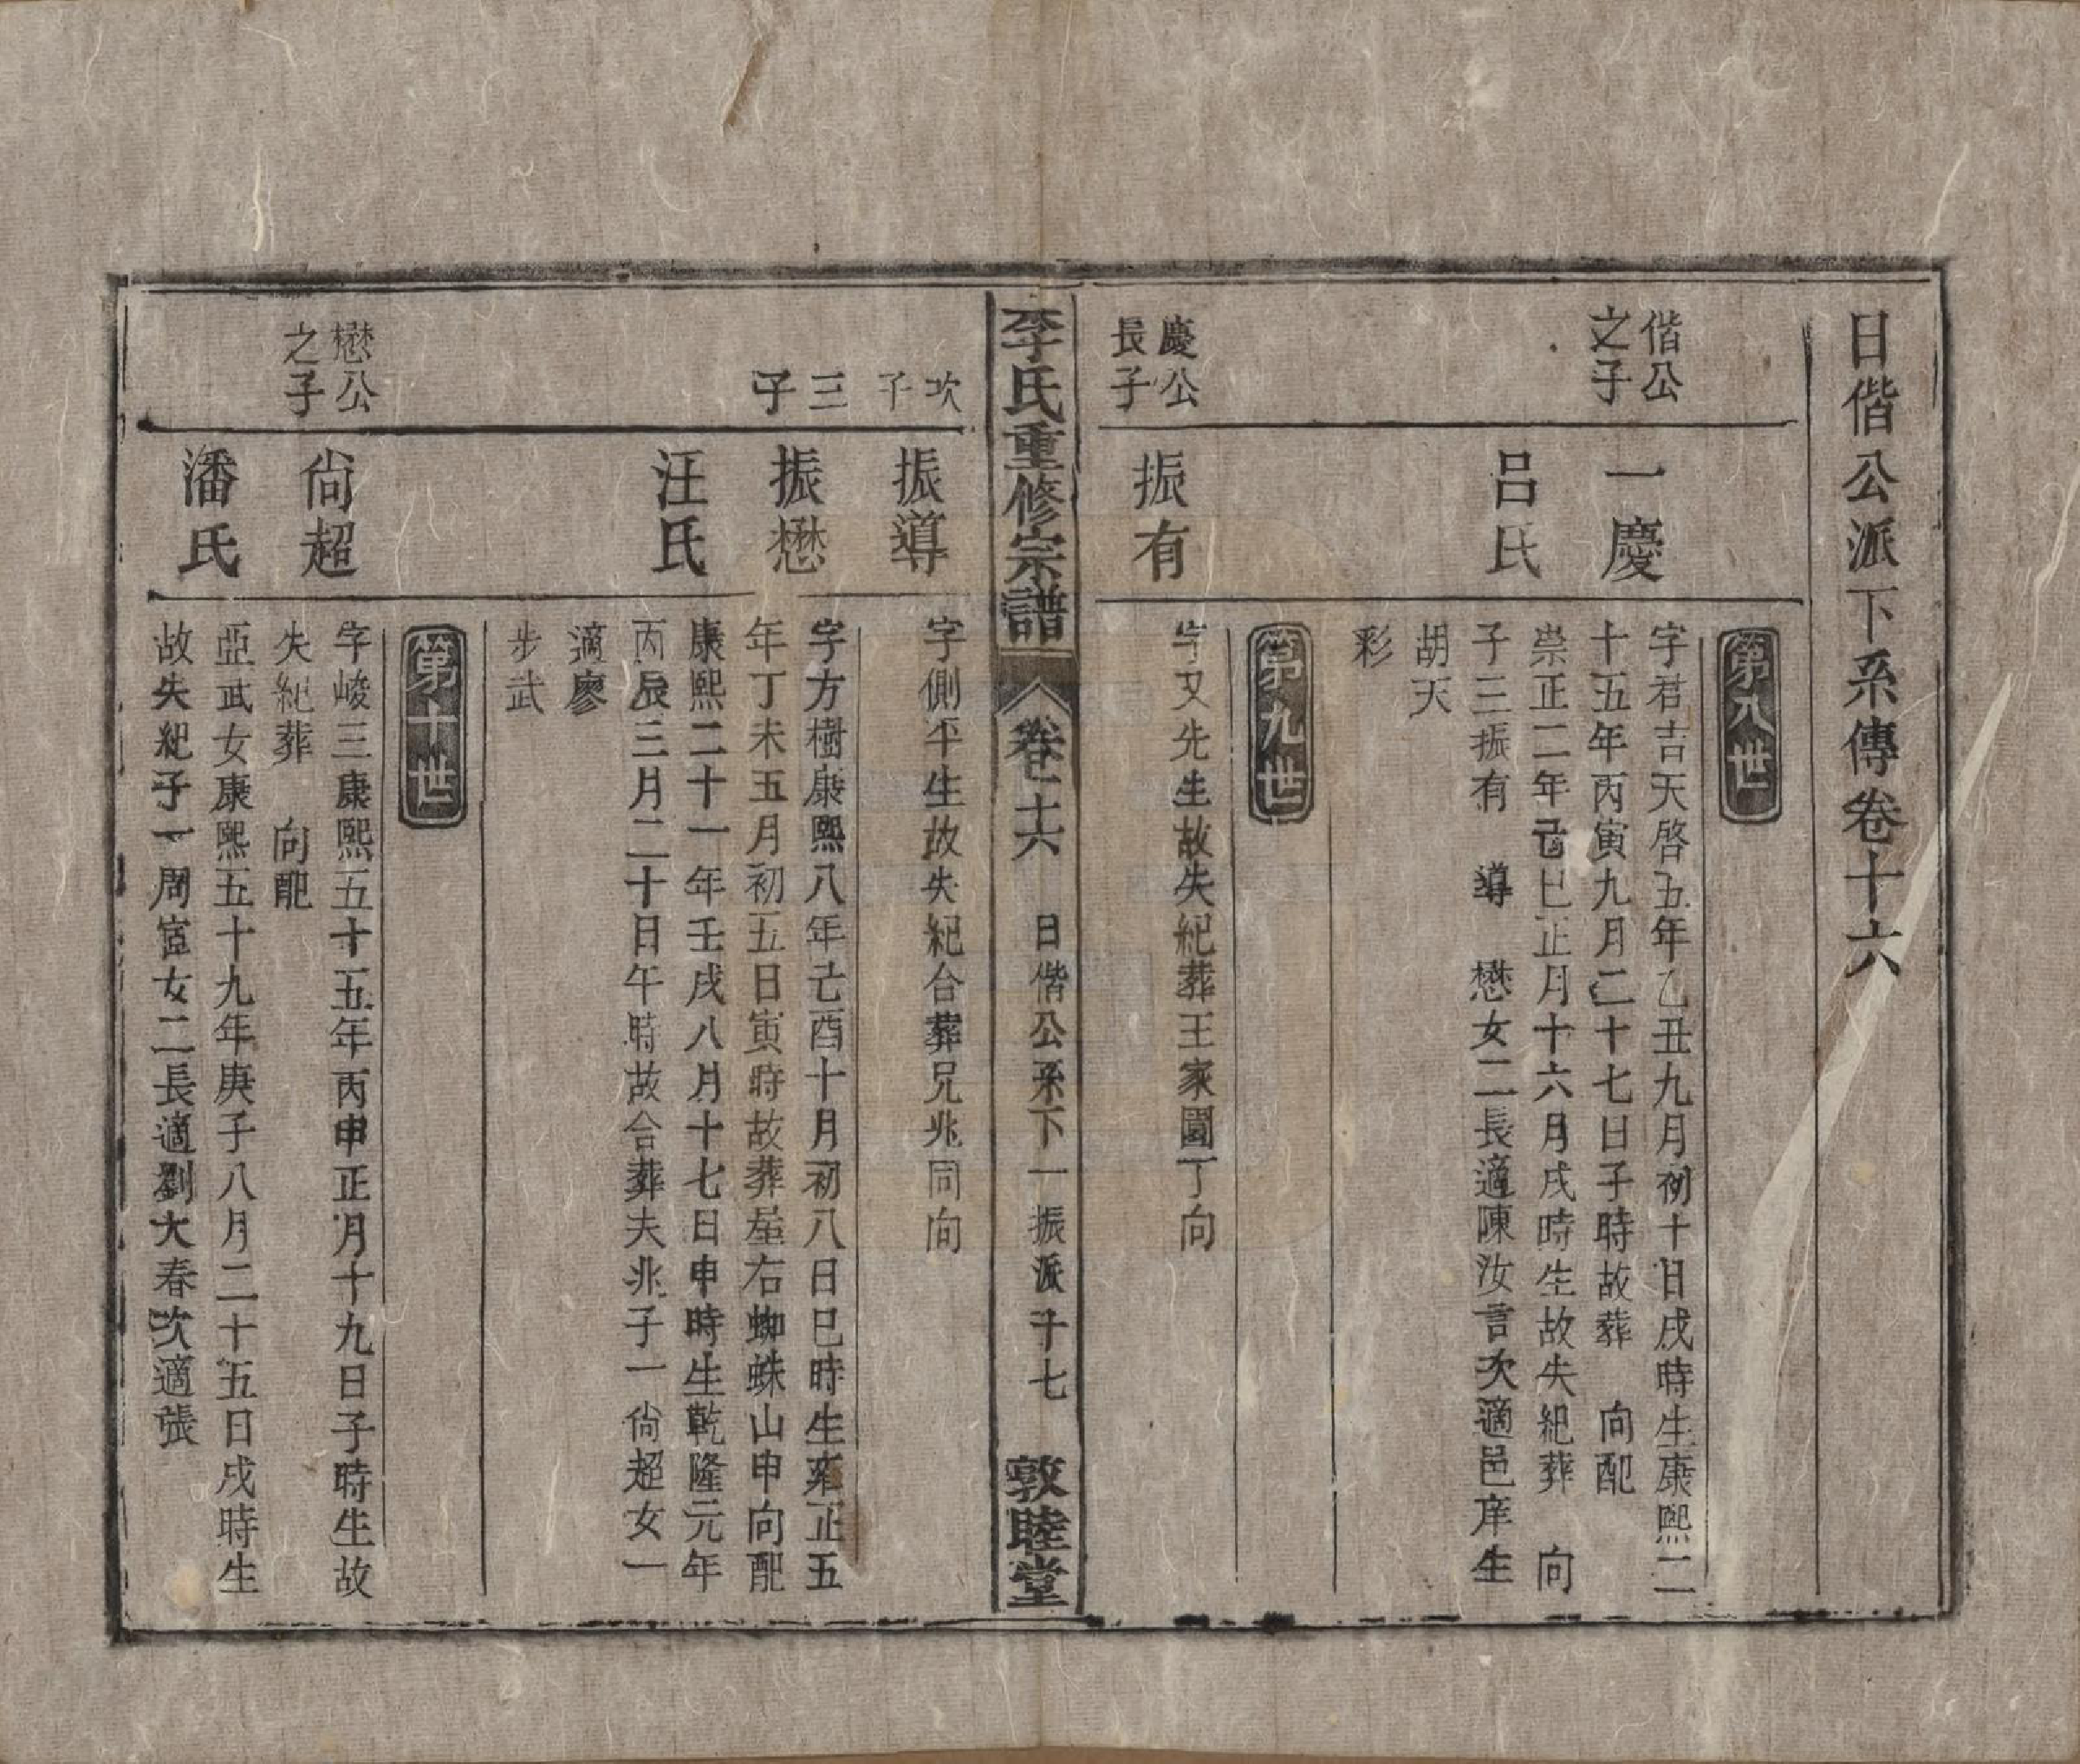 日偕公派下系傳卷十六
第八世
偕公
之子
一慶
字君吉天啓五年乙丑九月初十日戌時生康熙二
十五年丙寅九月二十七日子時故葬　向配
呂氏
崇正二年己巳正月十六月戌時生故失紀葬　向
子三振有　導　懋女二長適陳汝言次適邑庠生
胡天
彩
第九世
慶公
長子
振有
字又先生故失紀葬王家園丁向
李氏重修宗譜　卷十六　日偕公系下一振派　千七　敦睦堂
次
子
振導
字側平生故失紀合葬兄兆同向
三
子
振懋
字方樹康熙八年己酉十月初八日巳時生雍正五
年丁未五月初五日寅時故葬屋右蜘蛛山申向配
汪氏
康熙二十一年壬戌八月十七日申時生乾隆元年
丙辰三月二十日午時故合葬夫兆子一尙超女一
適廖
步武
第十世
懋公
之子
尙超
字峻三康熙五十五年丙申正月十九日子時生故
失紀葬　向配
潘氏
亞武女康熙五十九年庚子八月二十五日戌時生
故失紀子一周宦女二長適劉大春次適張